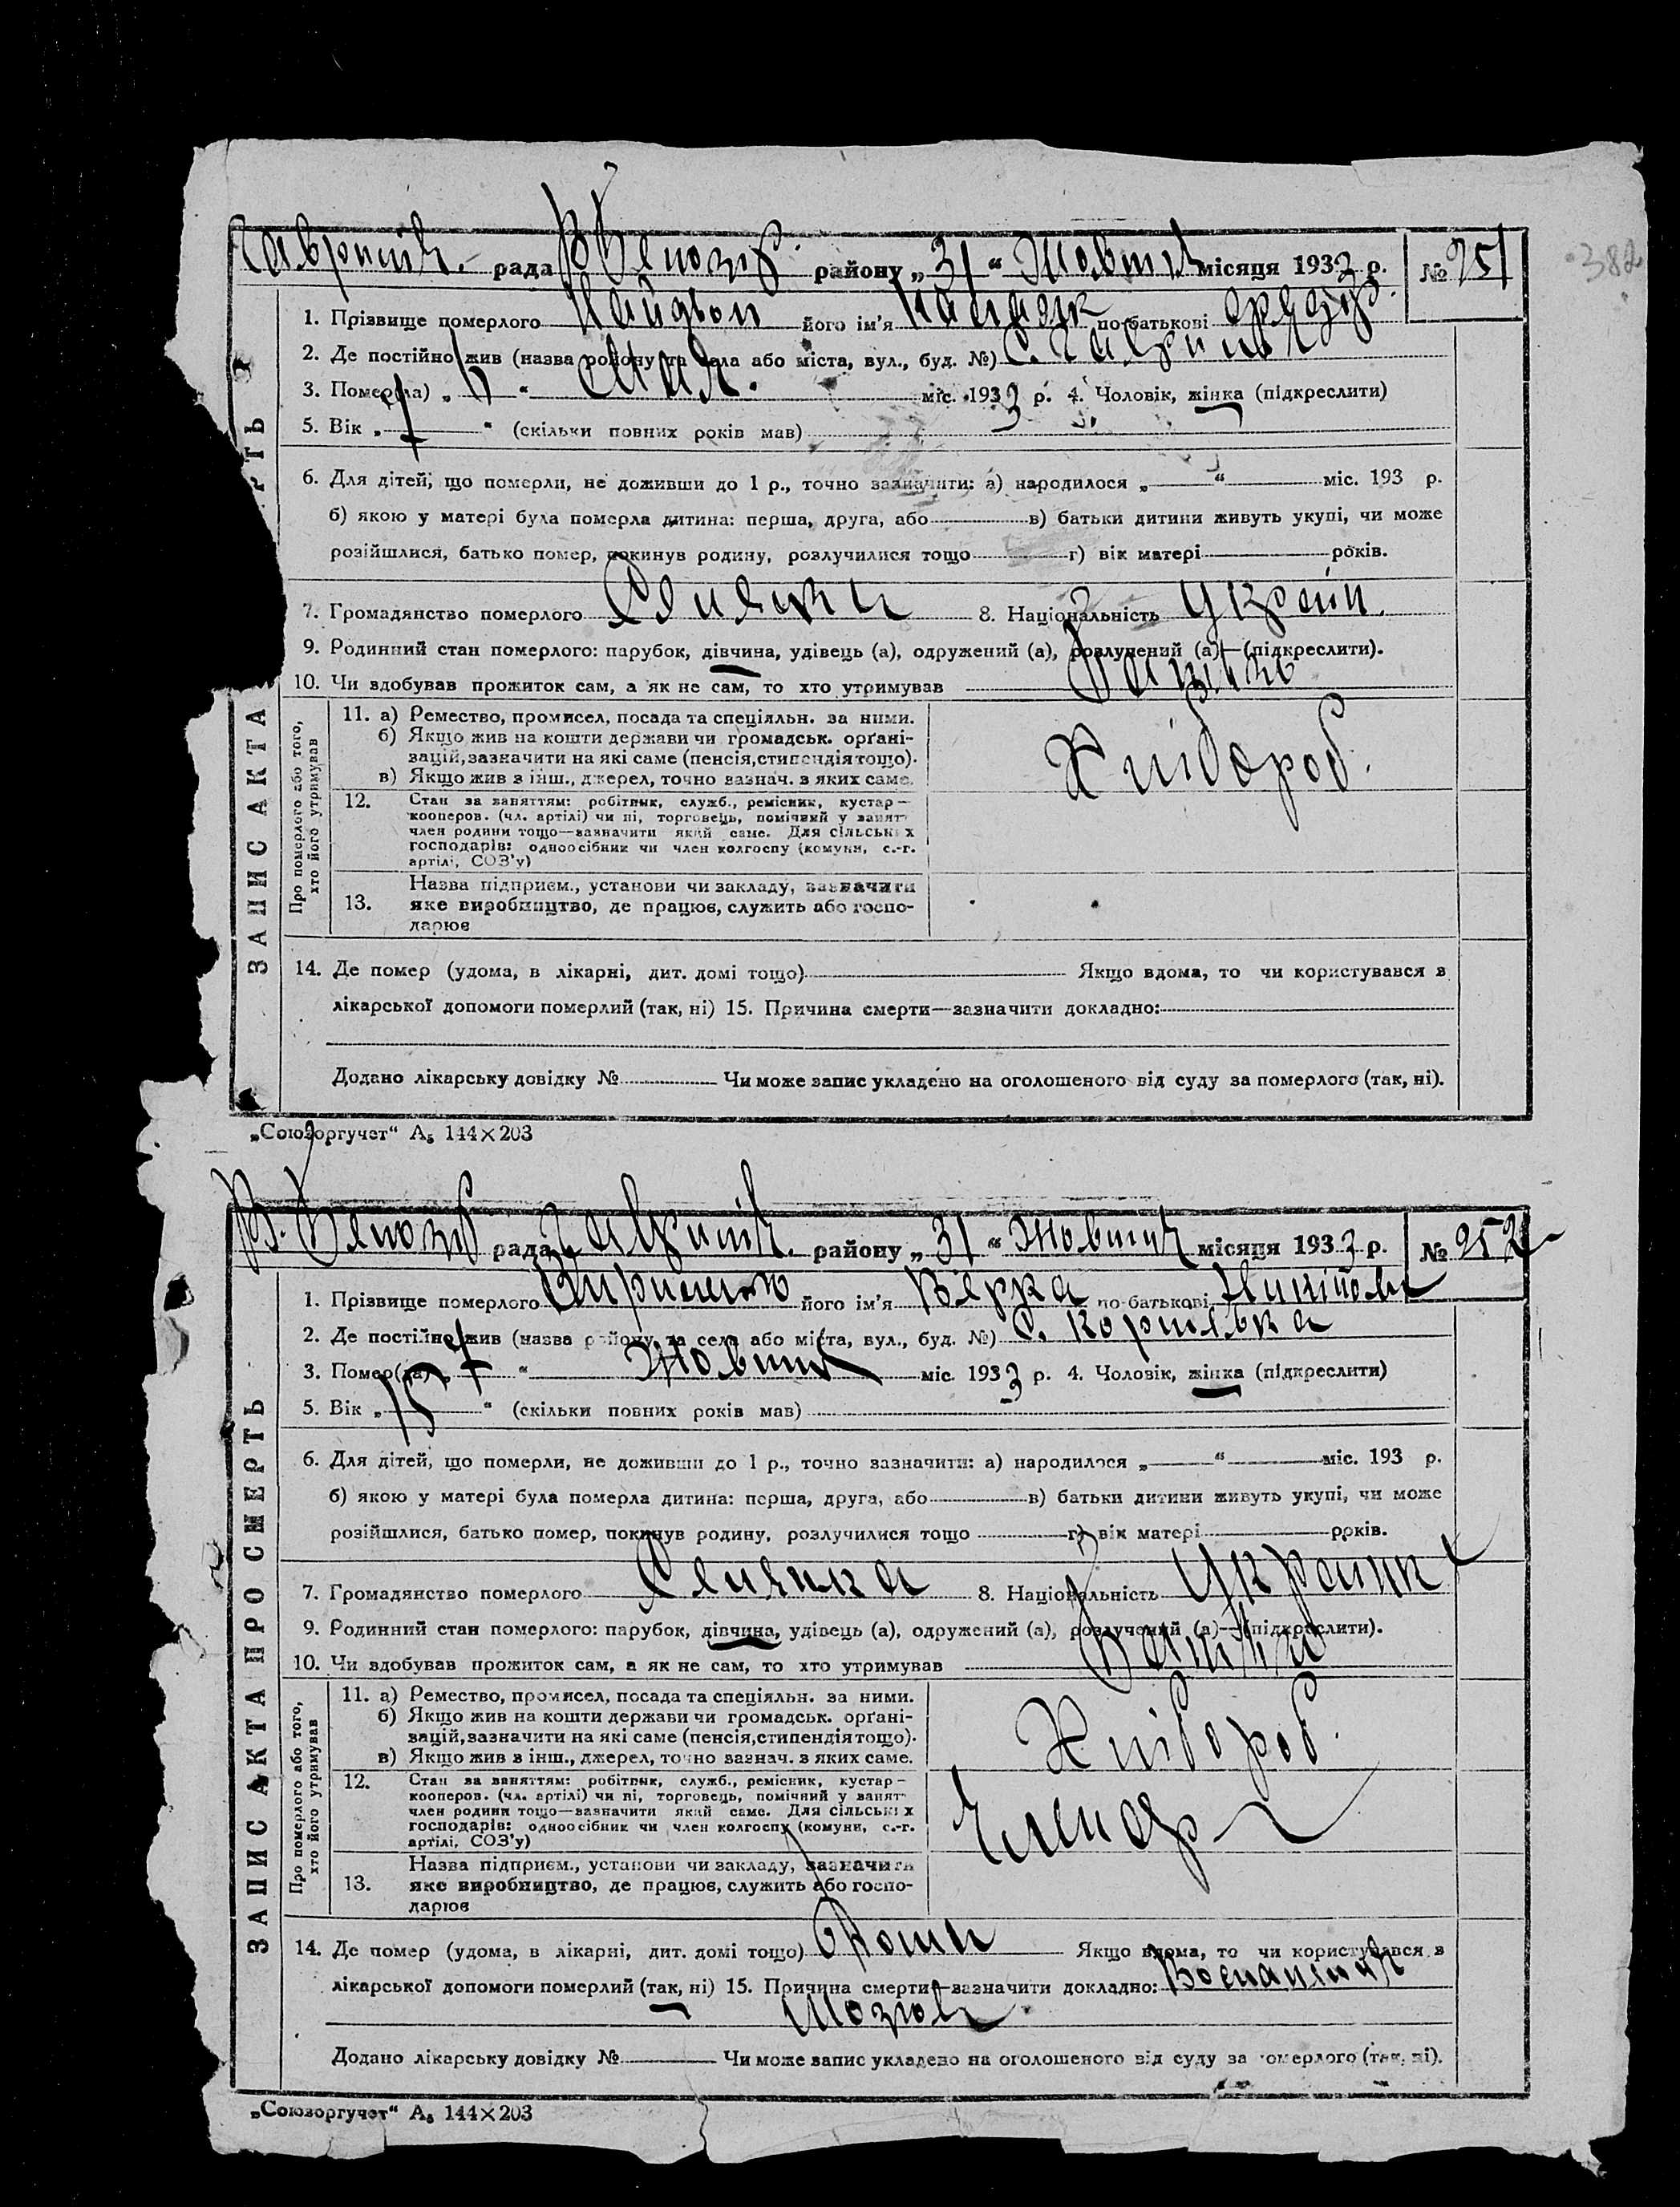 рада району „ 31 “ місяця 1933 р. № 251
382
1. Прізвище померлого його ім'я по батькові
2. Де постійно жив (назва району та села або міста, вул., буд. №) С.
3. Помер(ла) „ “ міс. 1933 р. 4. Чоловік, жінка (підкреслити)
5. Вік „ “ (скільки повних років мав)
6. Для дітей, що померли, не доживши до 1 р., точно зазначити: а) народилося „ “ міс. 193 р.
б) якою у матері була померла дитина: перша, друга, або в) батьки дитини живуть укупі, чи може
розійшлися, батько помер, покинув родину, розлучилися тощо г) вік матері років.
7. Громадянство померлого 8. Національність Україн.
9. Родинний стан померлого: парубок, дівчина, удівець (а), одружений (а), розлучений (а)—(підкреслити).
10. Чи здобував прожиток сам, а як не сам, то хто утримував
ЗАПИС АКТА
Про померлого або того, хто його утримував
11. а) Ремество, промисел, посада та спеціяльн. за ними.
б) Якщо жив на кошти держави чи громадськ. орґані-
зацій, зазначити на які саме (пенсія, стипендія тощо).
в) Якщо жив з інш., джерел, точно зазнач. з яких саме.
Хлібороб.
12. Стан за заняттям: робітник, служб., ремісник, кустар —
кооперов. (чл. артілі) чи ні, торговець, помічний у занят
член родини тощо—зазначити який саме. Для сільських
господарів: одноосібник чи член колгоспу (комуни, с.-г.
артілі, СОЗ'у)
13. Назва підприєм., установи чи закладу, зазначити
яке виробництво, де працює, служить або госпо-
дарює
14. Де помер (удома, в лікарні, дит. домі тощо) Якщо вдома, то чи користувався з
лікарської допомоги померлий (так, ні) 15. Причина смерти—зазначити докладно:
Додано лікарську довідку № Чи може запис укладено на оголошеного від суду за померлого (так, ні).
„Союзоргучет“ А₅ 144×203
рада району „ 31 “ місяця 1933 р. № 252
1. Прізвище померлого його ім'я по батькові
2. Де постійно жив (назва району та села або міста, вул., буд. №) С.
3. Помер(ла) „ 7 “ міс. 1933 р. 4. Чоловік, жінка (підкреслити)
5. Вік „ “ (скільки повних років мав)
6. Для дітей, що померли, не доживши до 1 р., точно зазначити: а) народилося „ “ міс. 193 р.
б) якою у матері була померла дитина: перша, друга, або в) батьки дитини живуть укупі, чи може
розійшлися, батько помер, покинув родину, розлучилися тощо г) вік матері років.
7. Громадянство померлого Селянка 8. Національність
9. Родинний стан померлого: парубок, дівчина, удівець (а), одружений (а), розлучений (а)—(підкреслити).
10. Чи здобував прожиток сам, а як не сам, то хто утримував
ЗАПИС АКТА ПРО СМЕРТЬ
Про померлого або того, хто його утримував
11. а) Ремество, промисел, посада та спеціяльн. за ними.
б) Якщо жив на кошти держави чи громадськ. орґані-
зацій, зазначити на які саме (пенсія, стипендія тощо).
в) Якщо жив з інш., джерел, точно зазнач. з яких саме.
Хлібороб.
12. Стан за заняттям: робітник, служб., ремісник, кустар —
кооперов. (чл. артілі) чи ні, торговець, помічний у занят
член родини тощо—зазначити який саме. Для сільських
господарів: одноосібник чи член колгоспу (комуни, с.-г.
артілі, СОЗ'у)
13. Назва підприєм., установи чи закладу, зазначити
яке виробництво, де працює, служить або госпо-
дарює
14. Де помер (удома, в лікарні, дит. домі тощо) Якщо вдома, то чи користувався з
лікарської допомоги померлий (так, ні) 15. Причина смерти—зазначити докладно:
Додано лікарську довідку № Чи може запис укладено на оголошеного від суду за померлого (так, ні).
„Союзоргучет“ А₅ 144×203